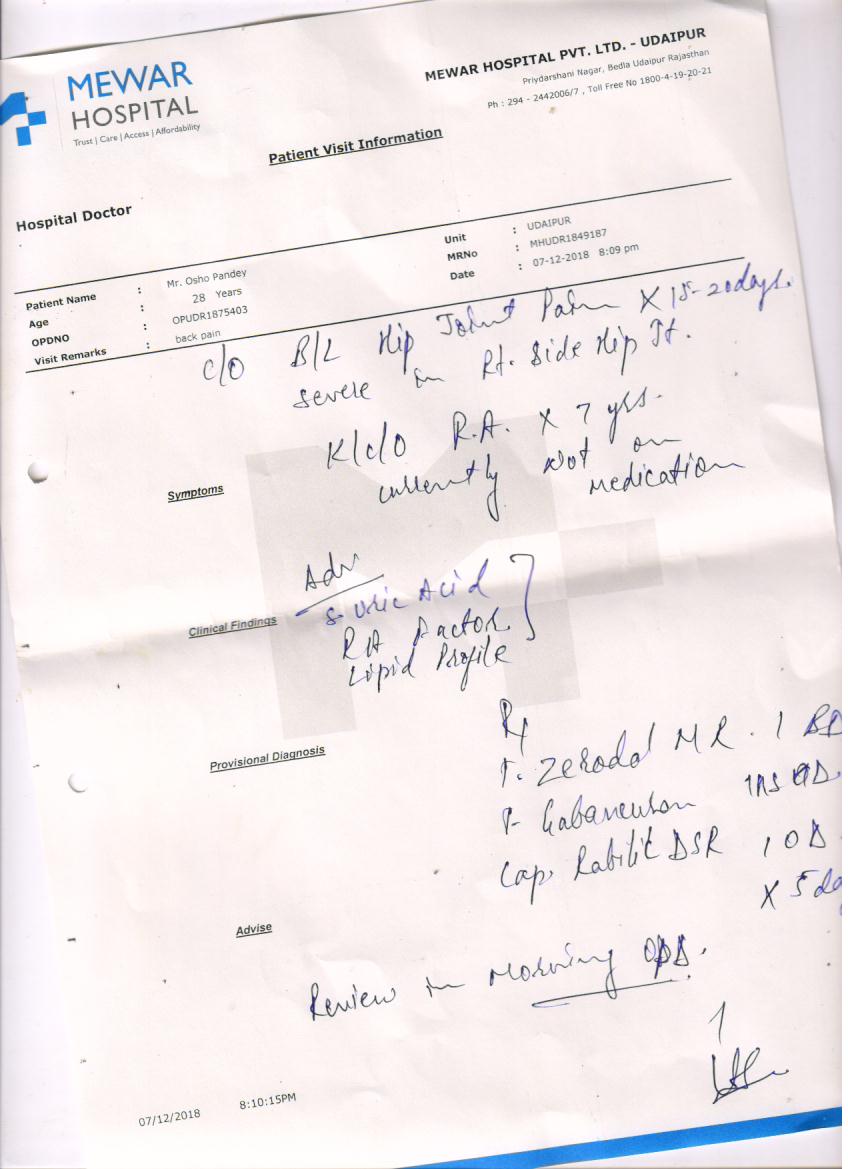 MEWAR
HOSPITAL
Trust | Care | Access | Affordability
MEWAR HOSPITAL PVT. LTD. - UDAIPUR
Priydarshani Nagar, Bedla Udaipur Rajasthan
Ph : 294 - 2442006/7 , Toll Free No 1800-4-19-20-21
Patient Visit Information
Hospital Doctor
Unit : UDAIPUR
MRNo : MHUDR1849187
Date : 07-12-2018 8:09 pm
Patient Name : Mr. Osho Pandey
Age : 28 Years
OPDNO : OPUDR1875403
Visit Remarks : back pain
c/o B/L Hip Joint Pain X 15-20days.
severe in Rt. Side Hip Jt.
K/c/o R.A. X 7 yrs.
currently not on
medication
Symptoms
Adv
S. Uric Acid
Clinical Findings
RA Factor
Lipid Profile
Rx
Provisional Diagnosis
T. Zerodol MR. 1 BD
T. 1 HS
Cap. Rablit DSR 1 OD
X 5 da
Advise
Review in Morning OPD.
07/12/2018 8:10:15PM